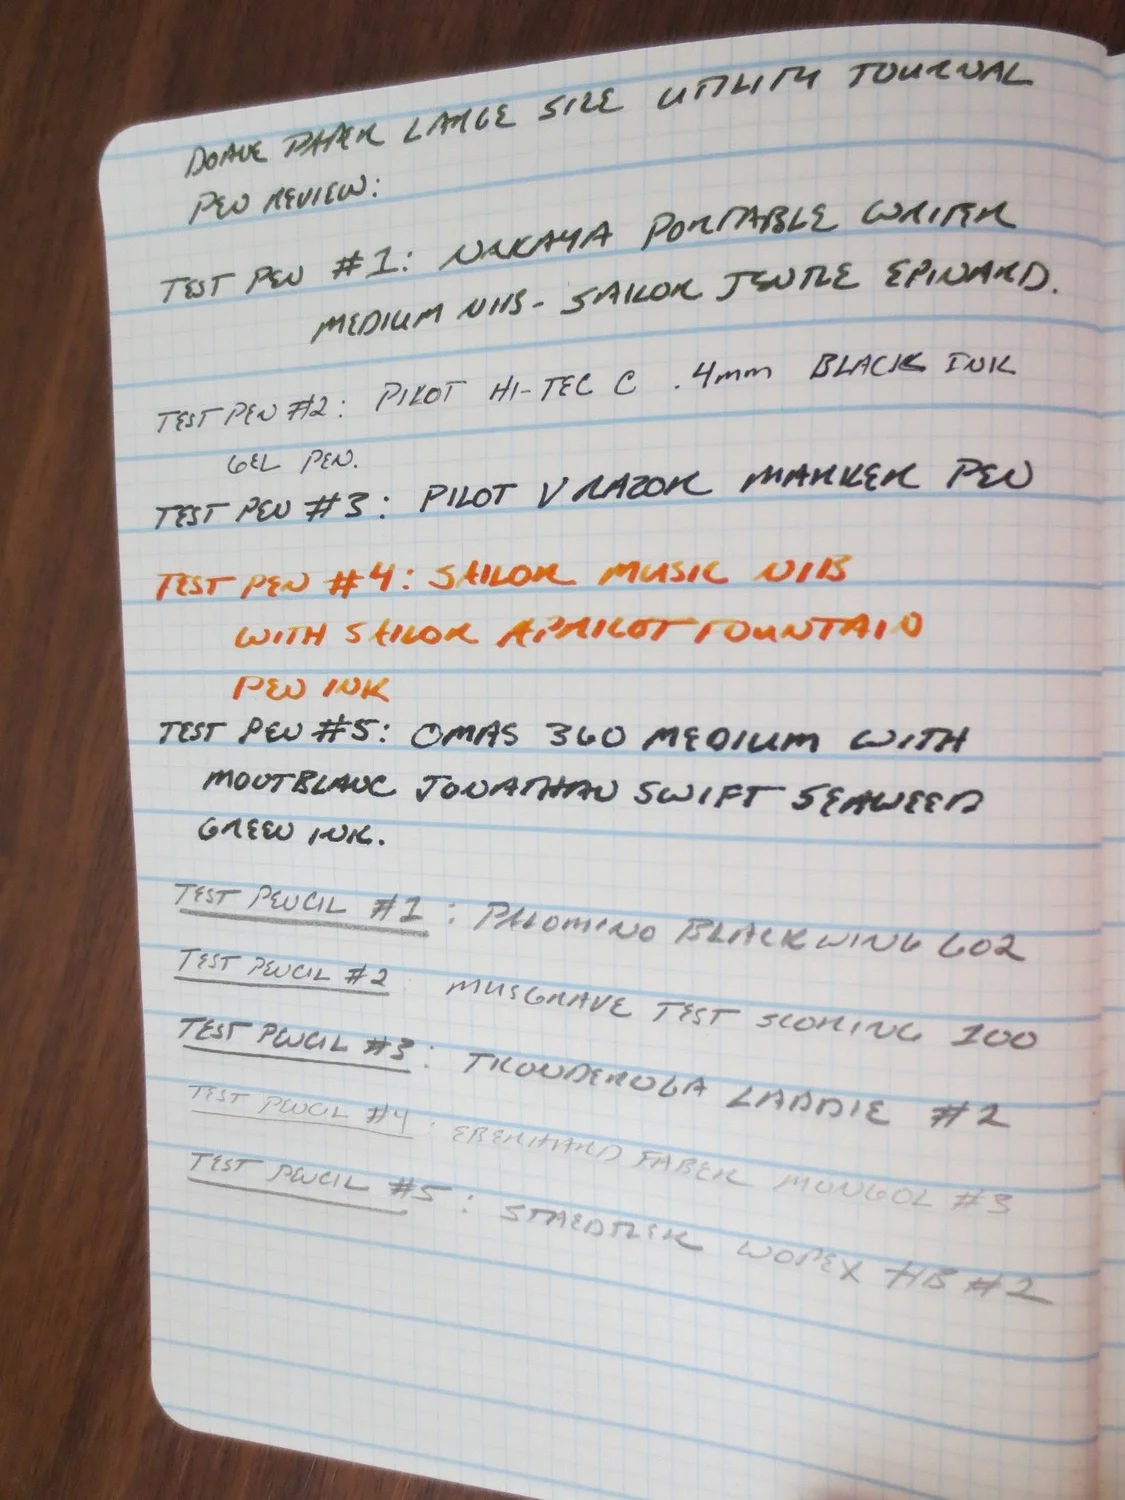 DOANE PAPER LARGE SIZE UTILITY JOURNAL
PEN REVIEW:
TEST PEN #1: NAKAYA PORTABLE WRITER
MEDIUM NIB - SAILOR JENTLE EPINARD.
TEST PEN #2: PILOT HI-TEC C .4mm BLACK INK
GEL PEN.
TEST PEN #3: PILOT V RAZOR MARKER PEN
TEST PEN #4: SAILOR MUSIC NIB
WITH SAILOR APRICOT FOUNTAIN
PEN INK
TEST PEN #5: OMAS 360 MEDIUM WITH
MONTBLANC JONATHAN SWIFT SEAWEED
GREEN INK.
TEST PENCIL #1: PALOMINO BLACKWING 602
TEST PENCIL #2 MUSGRAVE TEST SCORING 100
TEST PENCIL #3: TICONDEROGA LADDIE #2
TEST PENCIL #4: EBERHARD FABER MONGOL #3
TEST PENCIL #5: STAEDTLER WOPEX HB #2